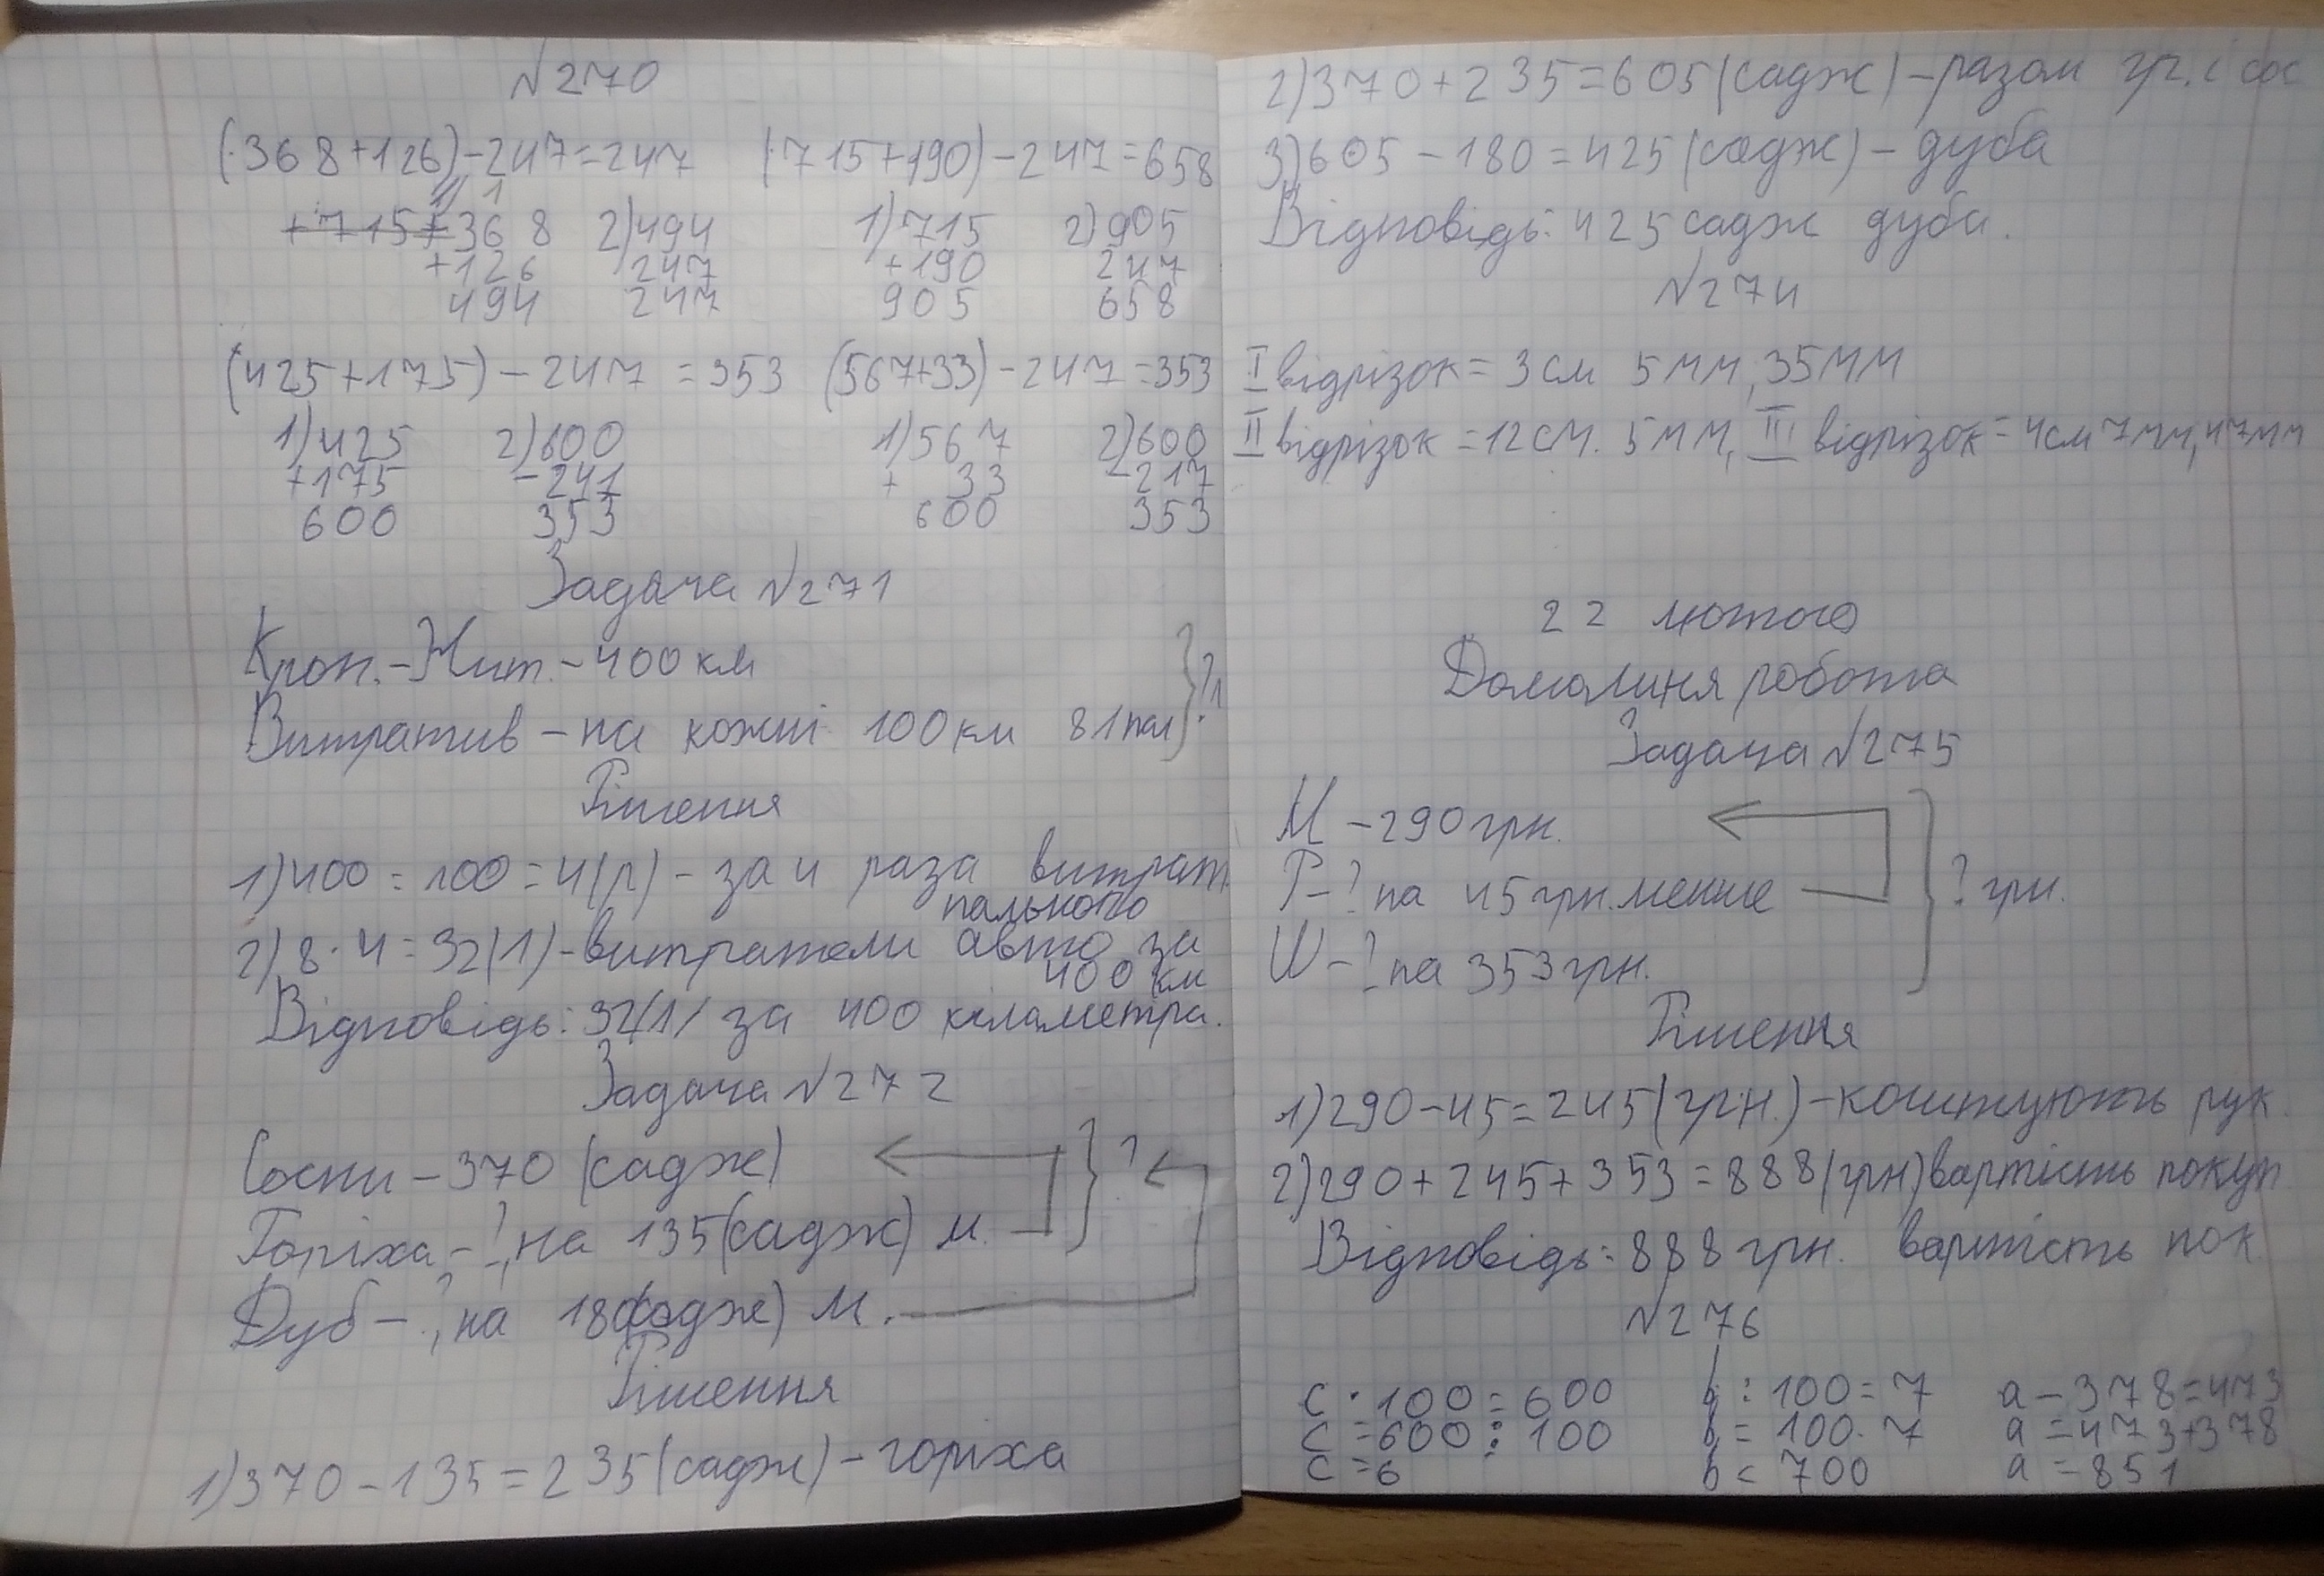 №270
(368+126)-247=247 (715+190)-247=658
1) 1
+715+368 2)494 1)715 2)905
+126 247 +190 247
494 247 905 658
(425+175)-247=353 (567+33)-247=353
1)425 2)600 1)567 2)600
+175 -247 + 33 -217
600 353 600 353
Задача №271
Кроп.-Жит.-400 км
Витратив - на кожні 100 км 81 пал }?1
Рішення
1)400:100=4(р)-за 4 раза витрат
пального
2)8·4=32(1)-витратели авто за
400 км
Відповідь: 32/1/ за 400 кіламетра.
Задача №272
Сосни-370 (садж) ?
Горіха-?, на 135(садж) м.
Дуб-?, на 180(садж) м.
Рішення
1)370-135=235(садж)-горіха
2)370+235=605(садж)-разом гр. і сос
3)605-180=425(садж)-дуба
Відповідь: 425 садж дуба.
№274
I відрізок=3см 5мм, 35мм
II відрізок=12см. 5мм, III відрізок=4см 7мм, 47мм
22 лютого
Домашня робота
Задача №275
М-290грн.
Р-? на 45грн. менше ? грн.
Ш-? на 353грн.
Рішення
1)290-45=245(грн.)-коштують рук.
2)290+245+353=888(грн)вартість покуп
Відповідь: 888 грн. вартість пок.
№276
c·100=600 b:100=7 a-378=473
c=600:100 b=100·7 a=473+378
c=6 b=700 a=851